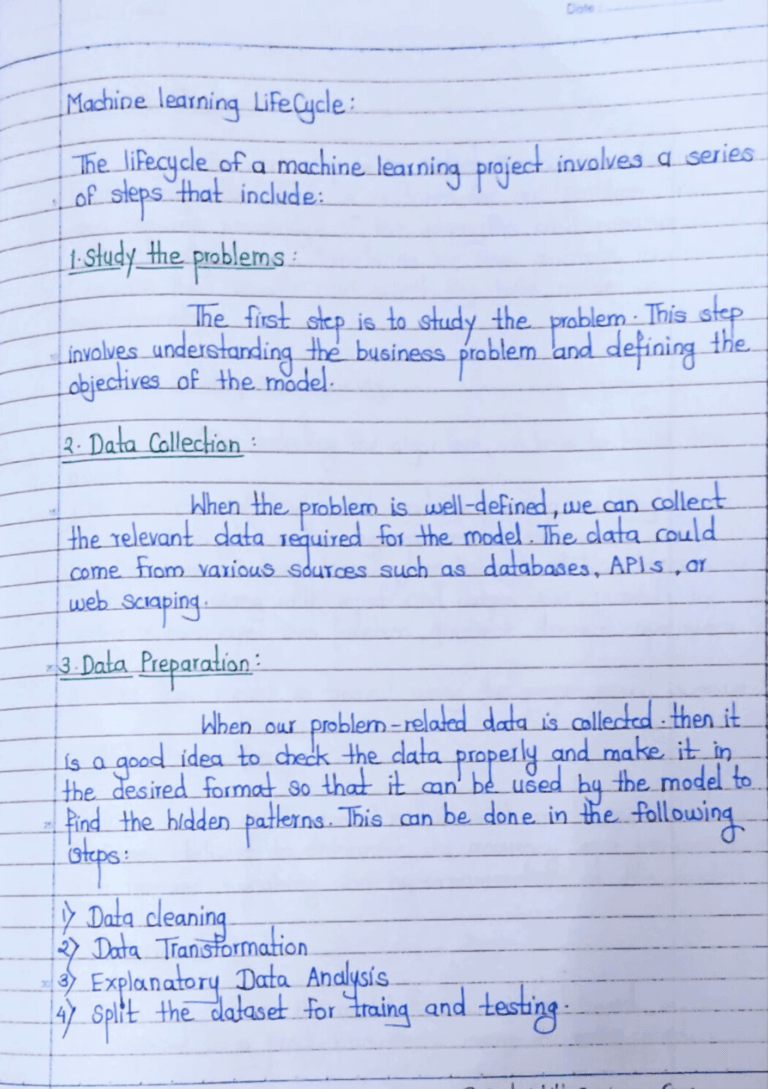 Date
Machine learning LifeCycle:
The lifecycle of a machine learning project involves a series
of steps that include:
1. Study the problems:
The first step is to study the problem. This step
involves understanding the business problem and defining the
objectives of the model.
2. Data Collection:
When the problem is well-defined, we can collect
the relevant data required for the model. The data could
come from various sources such as databases, APIs, or
web scraping.
3. Data Preparation:
When our problem-related data is collected. then it
is a good idea to check the data properly and make it in
the desired format so that it can be used by the model to
find the hidden patterns. This can be done in the following
steps:
1) Data cleaning
2) Data Transformation
3) Explanatory Data Analysis
4) Split the dataset for traing and testing.